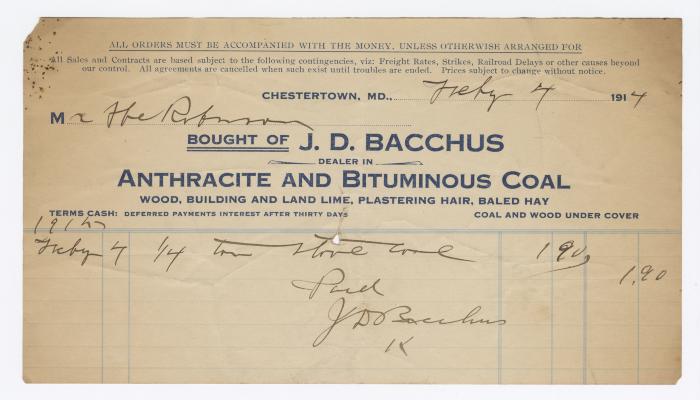 ALL ORDERS MUST BE ACCOMPANIED WITH THE MONEY, UNLESS OTHERWISE ARRANGED FOR
All Sales and Contracts are based subject to the following contingencies, viz: Freight Rates, Strikes, Railroad Delays or other causes beyond
our control. All agreements are cancelled when such exist until troubles are ended. Prices subject to change without notice.
CHESTERTOWN, MD., Feby 4 1914
Mr Abe Robinson
BOUGHT OF J. D. BACCHUS
DEALER IN
ANTHRACITE AND BITUMINOUS COAL
WOOD, BUILDING AND LAND LIME, PLASTERING HAIR, BALED HAY
TERMS CASH: DEFERRED PAYMENTS INTEREST AFTER THIRTY DAYS COAL AND WOOD UNDER COVER
Feby 1/4 ton Stove Coal 1 90
1,90
Paid
J D Bacchus